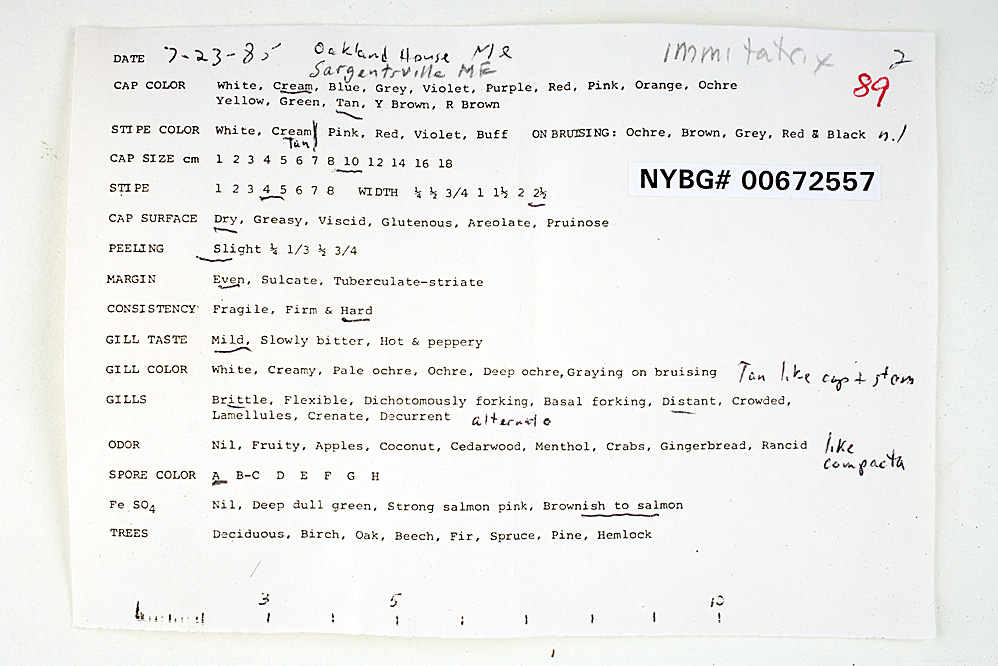 DATE 7-23-85 Oakland House Me 2
Sargentville ME immitatrix
CAP COLOR White, Cream, Blue, Grey, Violet, Purple, Red, Pink, Orange, Ochre 89
Yellow, Green, Tan, Y Brown, R Brown
STIPE COLOR White, Cream Pink, Red, Violet, Buff ON BRUISING: Ochre, Brown, Grey, Red & Black n.l
Tan
CAP SIZE cm 1 2 3 4 5 6 7 8 10 12 14 16 18
NYBG# 00672557
STIPE 1 2 3 4 5 6 7 8 WIDTH ¼ ½ 3/4 1 1½ 2 2½
CAP SURFACE Dry, Greasy, Viscid, Glutenous, Areolate, Pruinose
PEELING Slight ¼ 1/3 ½ 3/4
MARGIN Even, Sulcate, Tuberculate-striate
CONSISTENCY Fragile, Firm & Hard
GILL TASTE Mild, Slowly bitter, Hot & peppery
GILL COLOR White, Creamy, Pale ochre, Ochre, Deep ochre, Graying on bruising Tan like cap & stem
GILLS Brittle, Flexible, Dichotomously forking, Basal forking, Distant, Crowded,
Lamellules, Crenate, Decurrent alternate
ODOR Nil, Fruity, Apples, Coconut, Cedarwood, Menthol, Crabs, Gingerbread, Rancid like
compacta
SPORE COLOR A B-C D E F G H
Fe SO4 Nil, Deep dull green, Strong salmon pink, Brownish to salmon
TREES Deciduous, Birch, Oak, Beech, Fir, Spruce, Pine, Hemlock
3 5 10